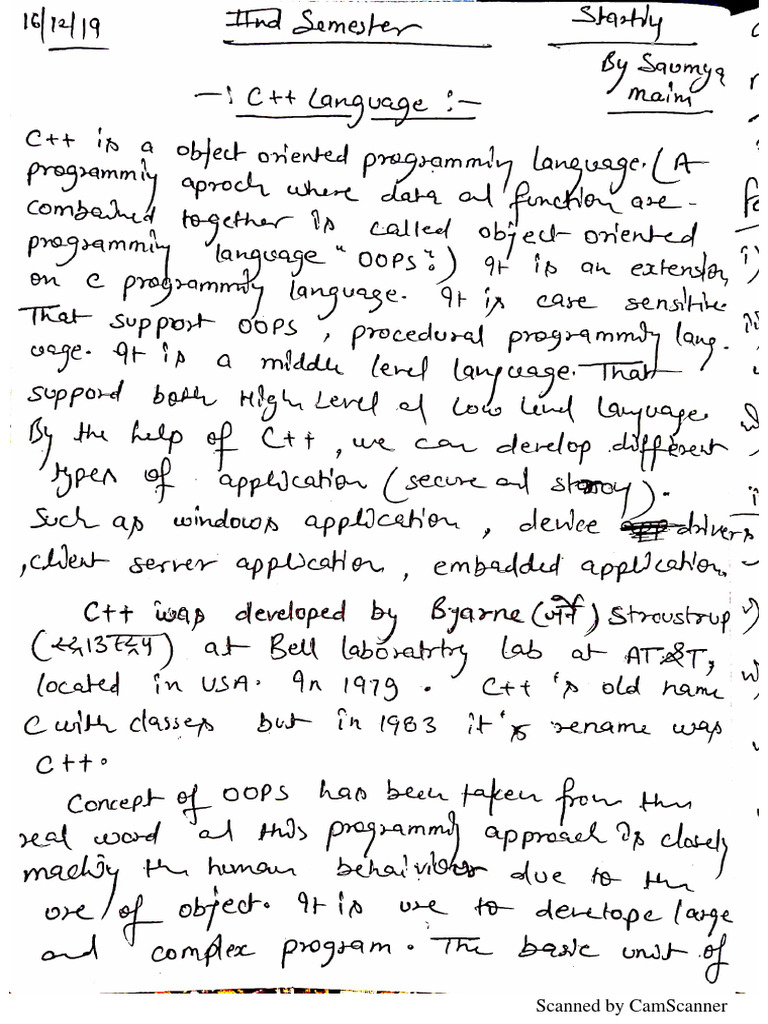 16/12/19 IInd Semester Startly
By Saumya
maini
-: C++ Language :-
C++ is a object oriented programmiy language. (A
programmiy aproch where data and function are -
combained together is called object oriented
programmiy language "OOPS".) It is an extension
on c programmiy language. It is case sensitive
That support OOPS, procedural programmiy lang-
uage. It is a middle level language. That
support both High Level and Low level language.
By the help of C++, we can develop different
types of application (secure and strong).
Such as windows application, device drivers
, client server application, embadded application.
C++ was developed by Byarne (जॉर्न) Stroustrup
at Bell laboratrtry lab at AT&T,
located in USA. In 1979. C++'s old name
C with classes but in 1983 it's rename was
C++.
Concept of OOPS has been taken from the
real word and this programmiy approach is closely
machiy the human behaiviour due to the
use of object. It is use to develope large
and complex program. The basic unit of
Scanned by CamScanner